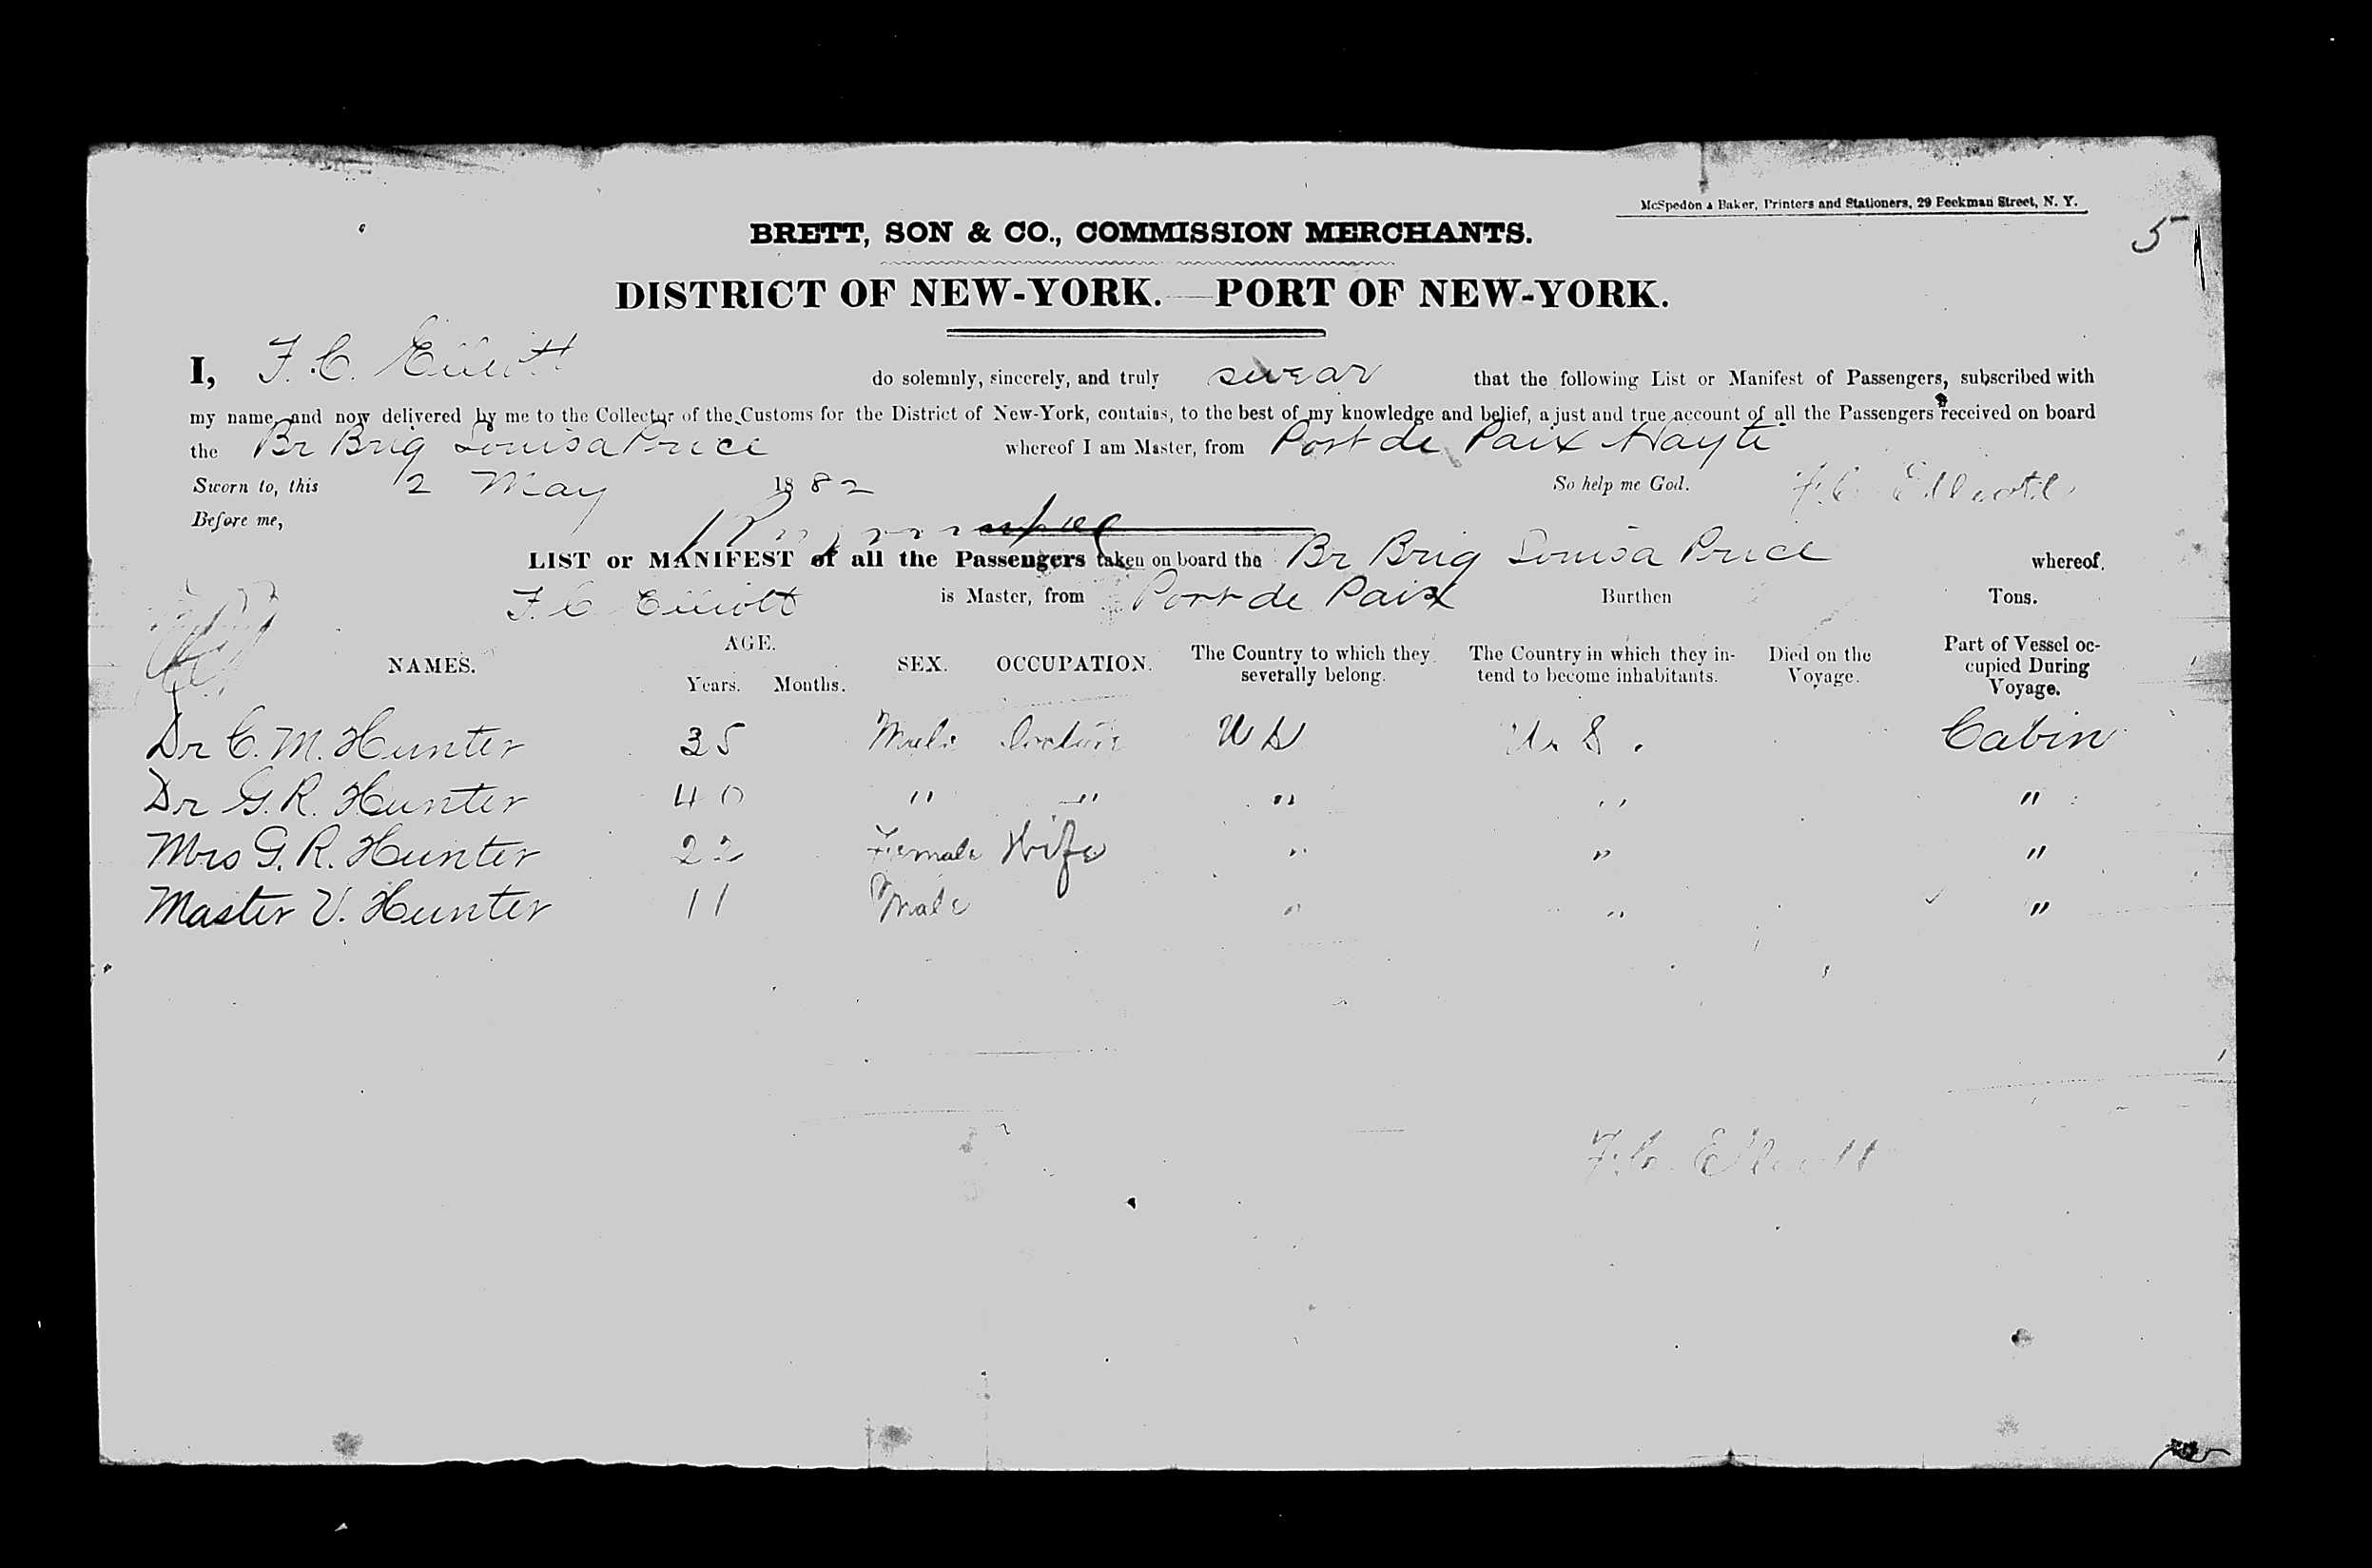 McSpedon & Baker, Printers and Stationers, 29 Beekman Street, N. Y.
5
BRETT, SON & CO., COMMISSION MERCHANTS.
DISTRICT OF NEW-YORK. — PORT OF NEW-YORK.
I, F. C. Elliott do solemnly, sincerely, and truly swear that the following List or Manifest of Passengers, subscribed with
my name, and now delivered by me to the Collector of the Customs for the District of New-York, contains, to the best of my knowledge and belief, a just and true account of all the Passengers received on board
the Br Brig Louisa Price whereof I am Master, from Port de Paix Hayti
Sworn to, this 2 May 1882 So help me God. F. C. Elliott
Before me,
LIST or MANIFEST of all the Passengers taken on board the Br Brig Louisa Price whereof
F. C Elliott is Master, from Port de Paix Burthen Tons.
NAMES. AGE. Years. Months. SEX. OCCUPATION. The Country to which they severally belong. The Country in which they intend to become inhabitants. Died on the Voyage. Part of Vessel occupied During Voyage.
Dr C. M. Hunter 35 Male U S U. S. Cabin
Dr G. R. Hunter 40 " " " " "
Mrs G. R. Hunter 22 Female Wife " " "
Master V. Hunter 11 Male " " "
F. C. Elliott